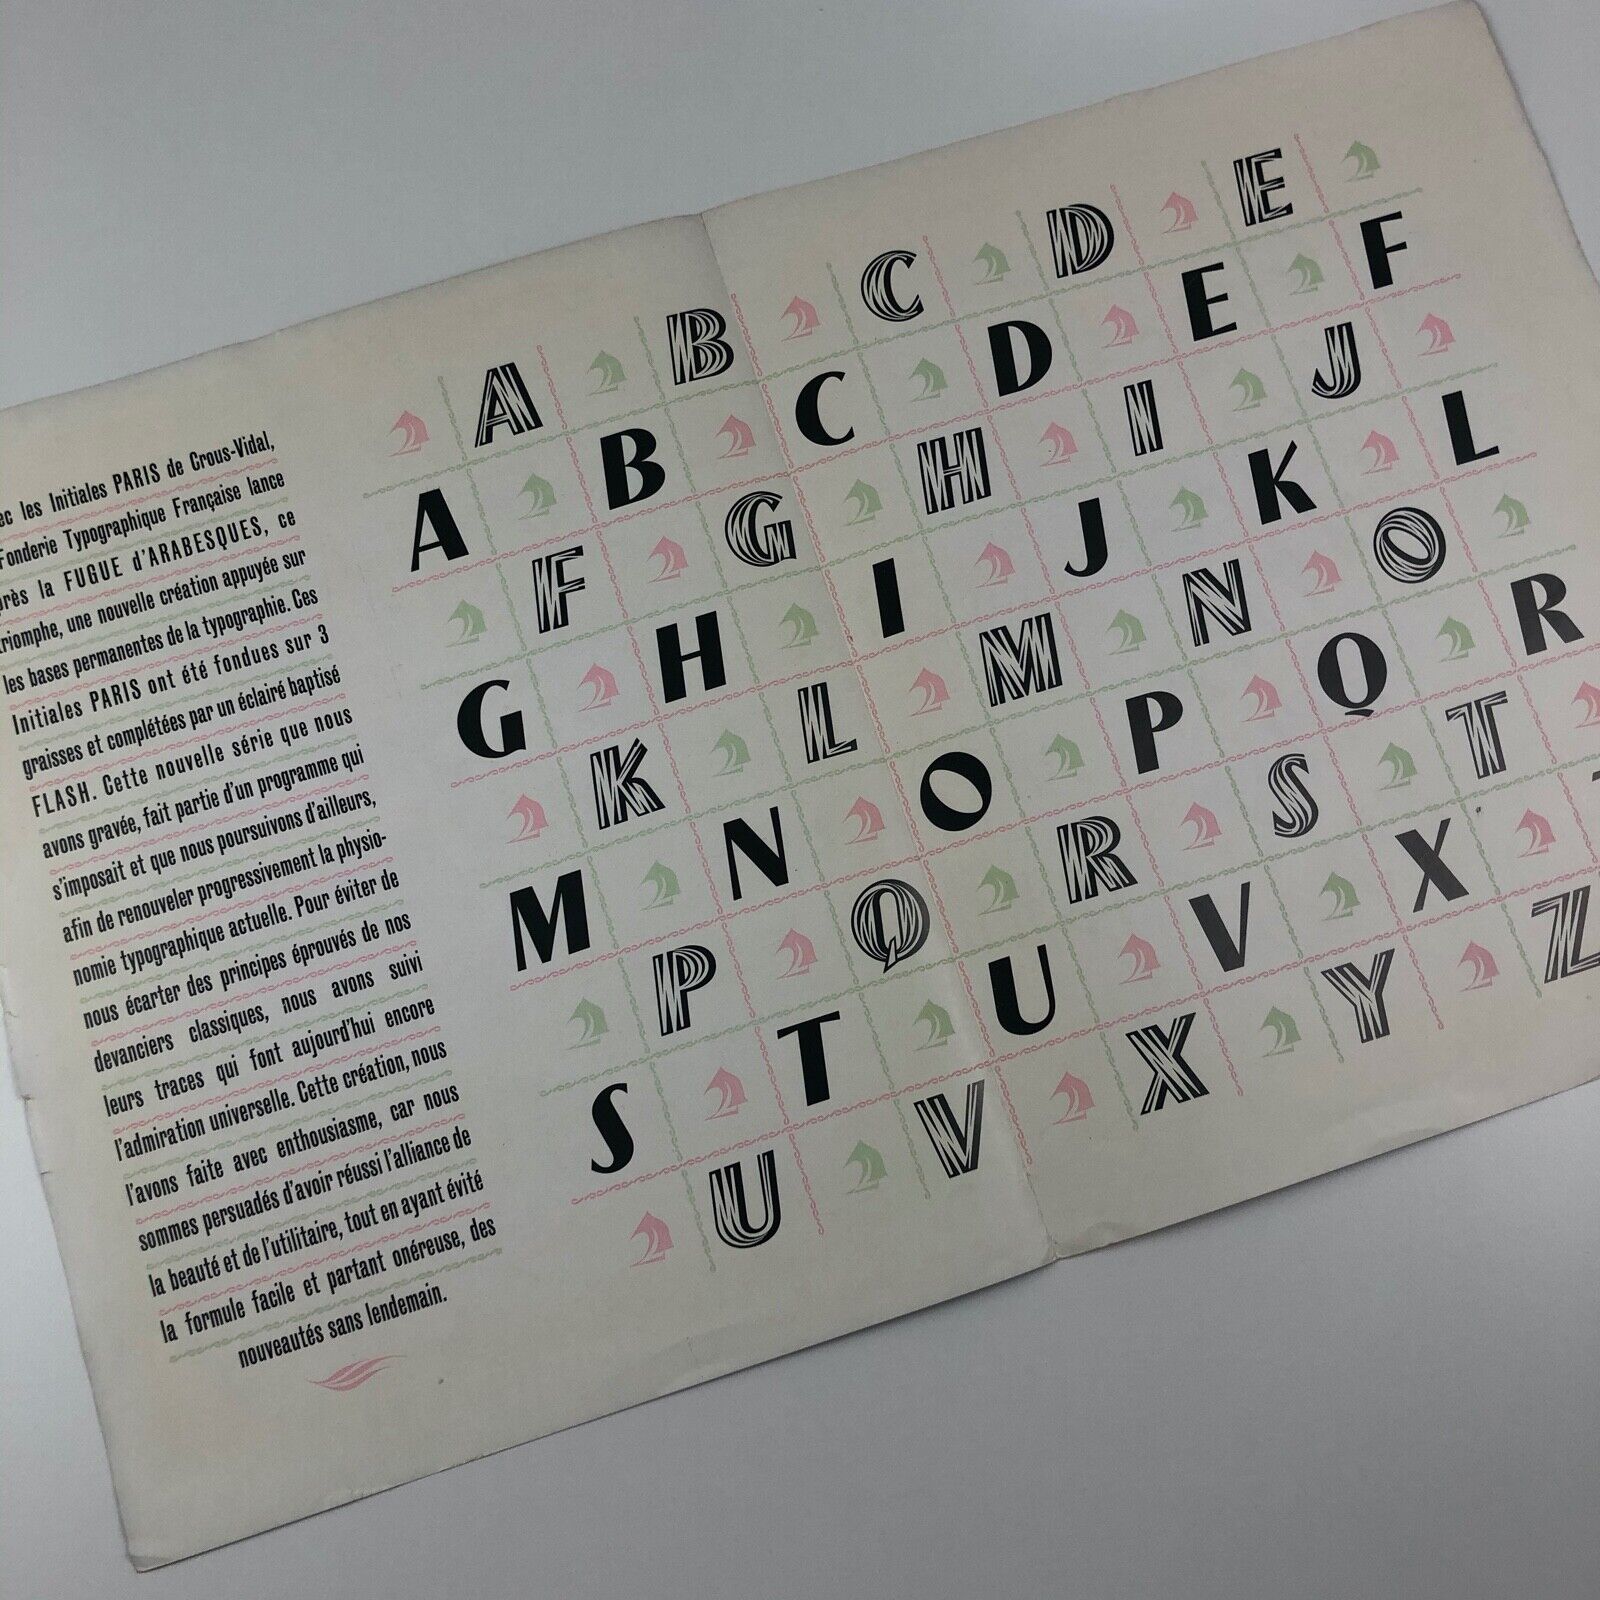 ec les Initiales PARIS de Crous-Vidal,
Fonderie Typographique Française lance
près la FUGUE d'ARABESQUES, ce
triomphe, une nouvelle création appuyée sur
les bases permanentes de la typographie. Ces
Initiales PARIS ont été fondues sur 3
graisses et complétées par un éclairé baptisé
FLASH. Cette nouvelle série que nous
avons gravée, fait partie d'un programme qui
s'imposait et que nous poursuivons d'ailleurs,
afin de renouveler progressivement la physio-
nomie typographique actuelle. Pour éviter de
nous écarter des principes éprouvés de nos
devanciers classiques, nous avons suivi
leurs traces qui font aujourd'hui encore
l'admiration universelle. Cette création, nous
l'avons faite avec enthousiasme, car nous
sommes persuadés d'avoir réussi l'alliance de
la beauté et de l'utilitaire, tout en ayant évité
la formule facile et partant onéreuse, des
nouveautés sans lendemain.
A B C D E
A B C D E F
F G H I J
G H I J K L
K L M N O
M N O P Q R
P Q R S T
S T U V X
U V X Y Z